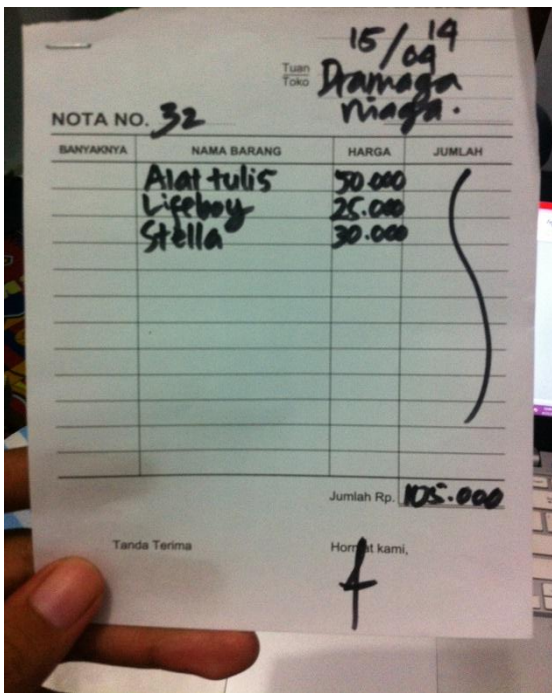 15/09 14
Tuan
Toko
Dramaga
niaga.
NOTA NO. 32
BANYAKNYA NAMA BARANG HARGA JUMLAH
Alat tulis 50.000
Lifeboy 25.000
Stella 30.000
Jumlah Rp. 105.000
Tanda Terima Hormat kami,